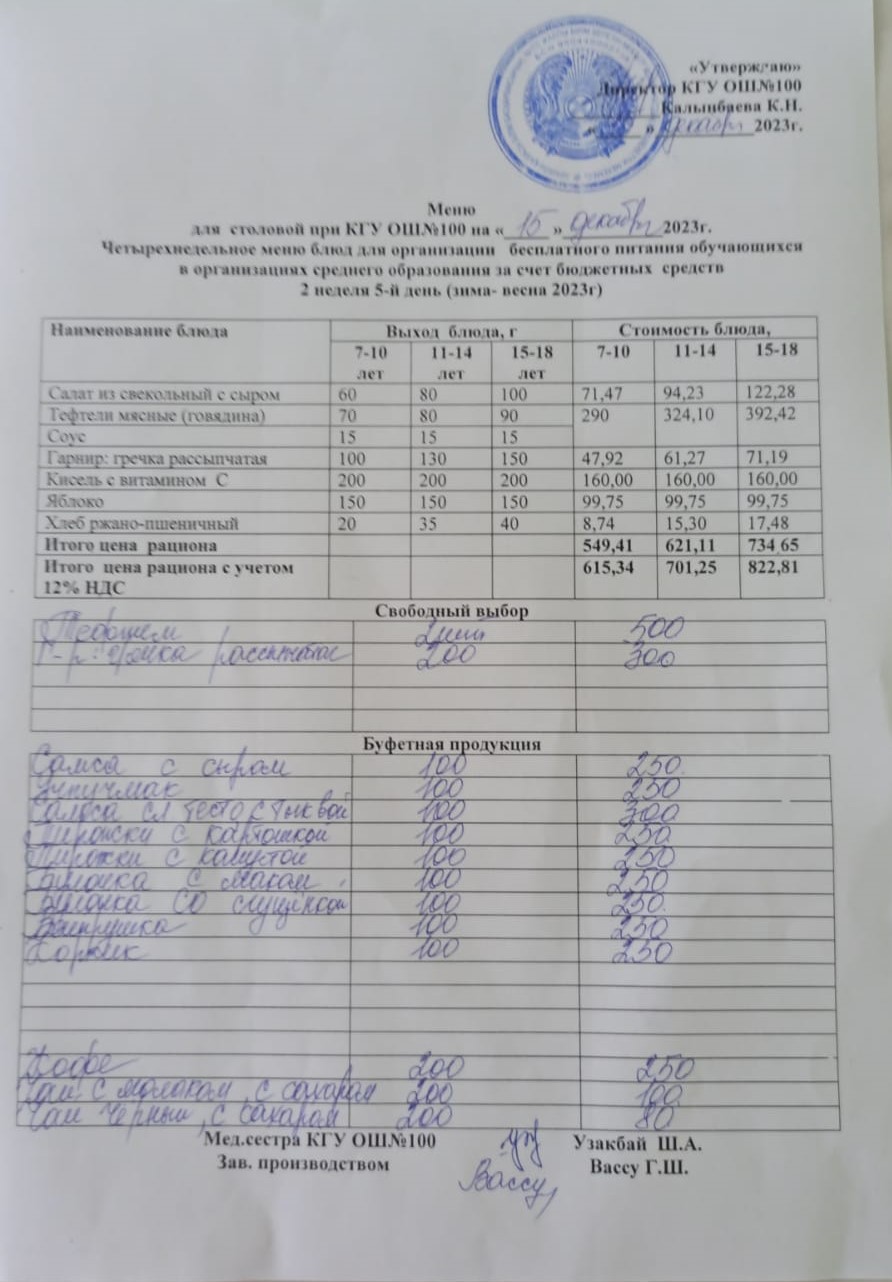 «Утверждаю»
Директор КГУ ОШ№100
Калынбаева К.Н.
«     » декабрь 2023г.
Меню
для столовой при КГУ ОШ№100 на « 15 » декабрь 2023г.
Четырехнедельное меню блюд для организации бесплатного питания обучающихся
в организациях среднего образования за счет бюджетных средств
2 неделя 5-й день (зима- весна 2023г)
Наименование блюда Выход блюда, г Стоимость блюда,
7-10 лет 11-14 лет 15-18 лет 7-10 11-14 15-18
Салат из свекольный с сыром 60 80 100 71,47 94,23 122,28
Тефтели мясные (говядина) 70 80 90 290 324,10 392,42
Соус 15 15 15
Гарнир: гречка рассыпчатая 100 130 150 47,92 61,27 71,19
Кисель с витамином С 200 200 200 160,00 160,00 160,00
Яблоко 150 150 150 99,75 99,75 99,75
Хлеб ржано-пшеничный 20 35 40 8,74 15,30 17,48
Итого цена рациона 549,41 621,11 734 65
Итого цена рациона с учетом 615,34 701,25 822,81
12% НДС
Свободный выбор
2шт 500
Г-р: гречка рассыпчатая 200 300
Буфетная продукция
Самса с сыром 100 250
Учпучмак 100 250
Самса сл тесто с тыквой 100 300
Пирожки с картошкой 100 250
Пирожки с капустой 100 250
Булочка с маком 100 250
Булочка со сгущёнкой 100 250
Ватрушка 100 250
Коржик 100 250
Кофе 200 250
Чай с молоком, с сахаром 200 100
Чай черный, с сахаром 200 80
Мед.сестра КГУ ОШ№100 Узакбай Ш.А.
Зав. производством Вассу Вассу Г.Ш.